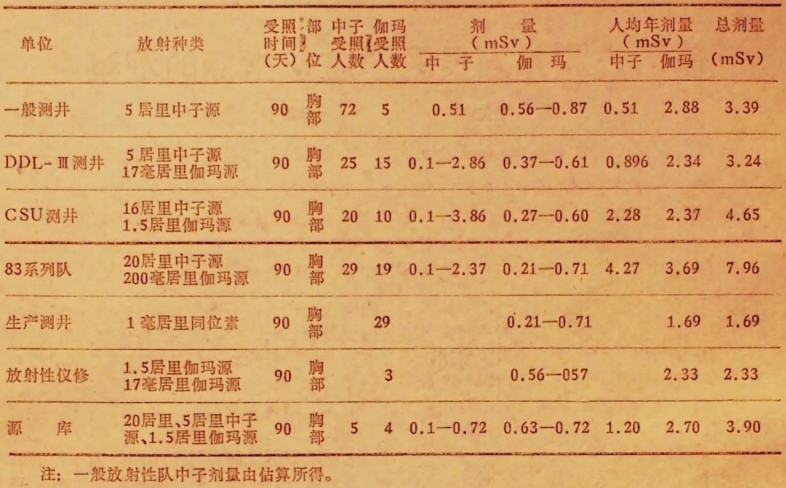 单位 放射种类 受照时间(天) 部位 中子受照人数 伽玛受照人数 剂量(mSv) 中子 伽玛 人均年剂量(mSv) 中子 伽玛 总剂量(mSv)
一般测井 5居里中子源 90 胸部 72 5 0.51 0.56—0.87 0.51 2.88 3.39
DDL-Ⅲ测井 5居里中子源 17毫居里伽玛源 90 胸部 25 15 0.1—2.86 0.37—0.61 0.896 2.34 3.24
CSU测井 16居里中子源 1.5居里伽玛源 90 胸部 20 10 0.1—3.86 0.27—0.60 2.28 2.37 4.65
83系列队 20居里中子源 200毫居里伽玛源 90 胸部 29 19 0.1—2.37 0.21—0.71 4.27 3.69 7.96
生产测井 1毫居里同位素 90 胸部 29 0.21—0.71 1.69 1.69
放射性仪修 1.5居里伽玛源 17毫居里伽玛源 90 胸部 3 0.56—057 2.33 2.33
源库 20居里、5居里中子源、1.5居里伽玛源 90 胸部 5 4 0.1—0.72 0.63—0.72 1.20 2.70 3.90
注：一般放射性队中子剂量由估算所得。